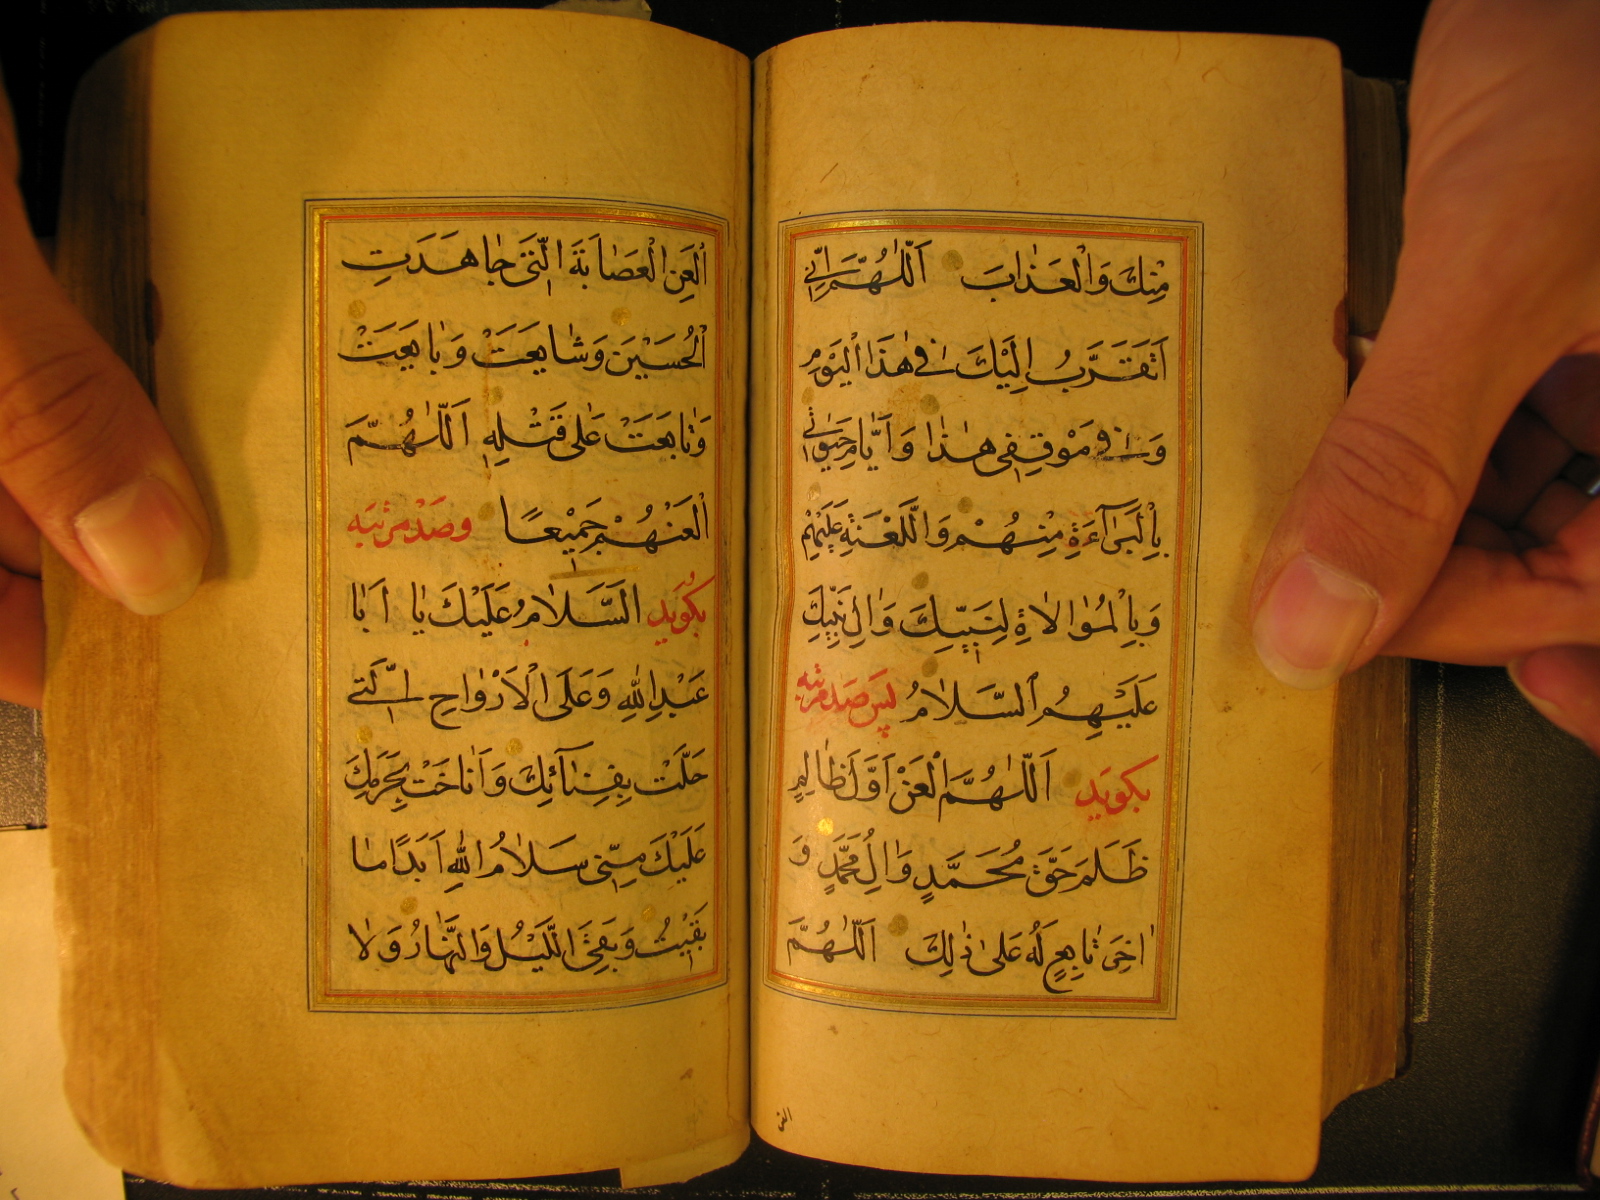 مِنْكَ وَالْعَذٰابَ اَللّٰهُمَّ اِنّٖي
اَتَقَرَّبُ اِلَيْكَ فٖي هٰذَا الْيَوْمِ
وَ فٖي مَوْقِفٖي هٰذٰا وَ اَيّٰامِ حَيٰوتٖي
بِالْبَرٰآءَةِ مِنْهُمْ وَالَّلعْنَةِ عَلَيْهِمْ
وَبِالْمُوٰالاٰةِ لِنَبِيِّكَ وَاٰلِ نَبِيِّكَ
عَلَيْهِمُ السَّلاٰمُ پس صَد مرتبه
بكويَد اَللّٰهُمَّ الْعَنْ اَوَّلَ ظٰالِمٍ
ظَلَمَ حَقَّ مُحَمَّدٍ وَاٰلِ مُحَمَّدٍ وَ
اٰخِرَ تٰابِعٍ لَهُ عَلىٰ ذٰلِكَ اَللّٰهُمَّ
العن
اْلعَنِ الْعَصٰابَةَ الَّتٖي جٰاهَدَتِ
الْحُسَيْنَ وَشٰايَعَتْ وَبٰايَعَتْ
وَتٰابَعَتْ عَلىٰ قَتْلِهٖ اَللّٰهُمَّ
الْعَنْهُمْ جَمٖيْعًا وصَد مرتبَه
بكُويَد السَّلاٰمُ عَلَيْكَ يٰا اَبٰا
عَبْدِاللهِ وَعَلَى الْاَرْوٰاحِ الَّتٖي
حَلَّتْ بِفِنٰآئِكَ وَ اَنٰاخَتْ بِحَرَمِكَ
عَلَيْكَ مِنّٖي سَلاٰمُ اللهِ اَبَدًا مٰا
بَقٖيْتُ وَبَقِيَ الَّليْلُ وَالنَّهٰارُ وَلاٰ